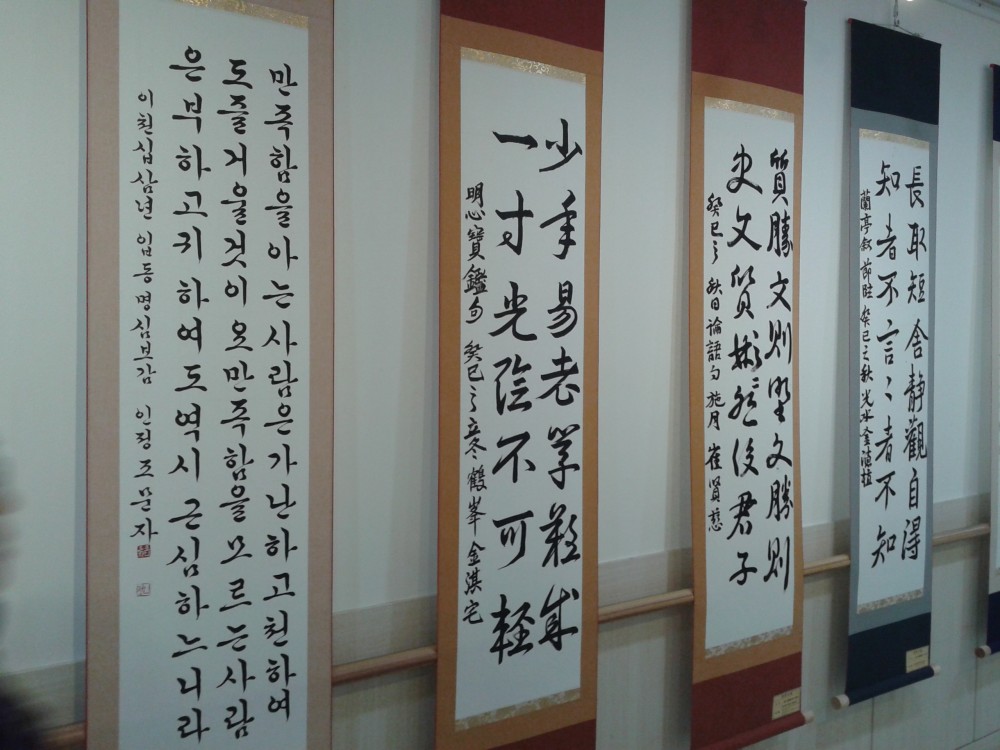 만족함을아는사람은가난하고천하여
도즐거울것이오만족함을모르는사람
은부하고귀하여도역시근심하느니라
이천십삼년 입동명심보감 인정 조문자
少年易老學難成
一寸光陰不可軽
明心寶鑑句 癸巳之冬 鶴峯 金淇宅
質勝文則野文勝則
史文質彬〻然後君子
癸巳之秋日論語句 施月 崔賢慈
長取短舍靜觀自得
知者不言〻者不知
蘭亭敍節臨 癸巳之秋